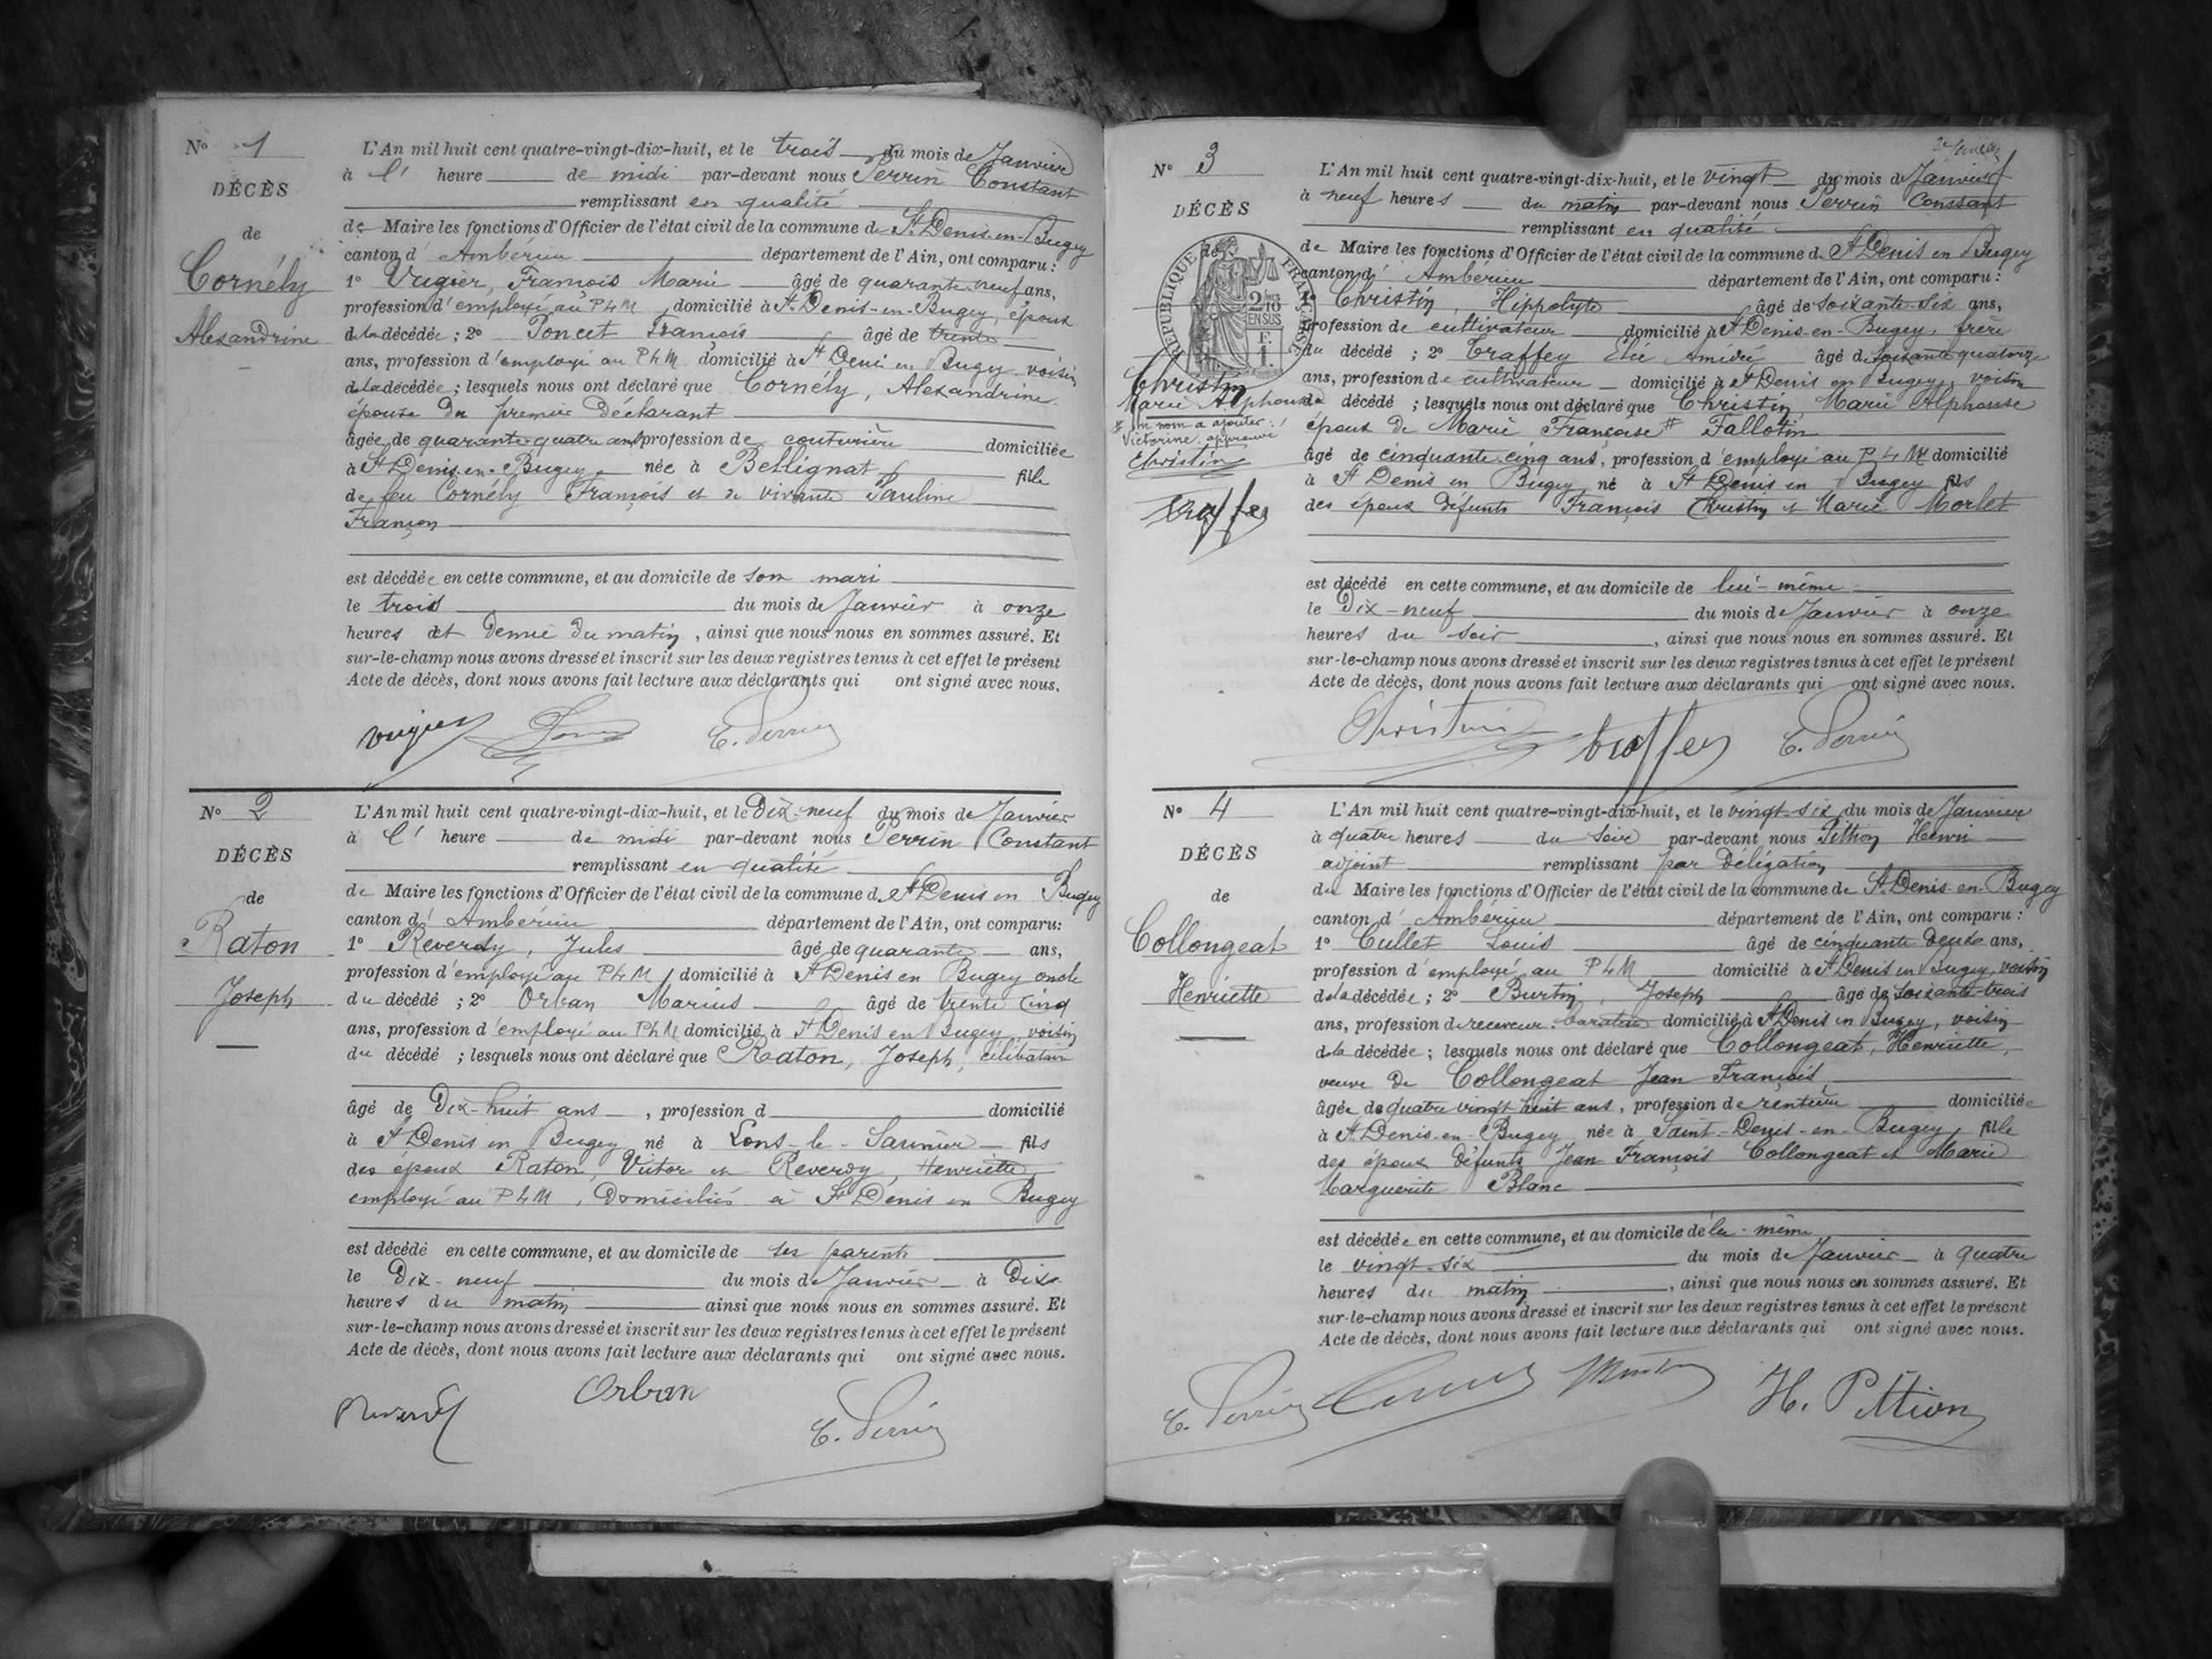 N° 1
DÉCÈS
de
Cornély
Alexandrine
L'An mil huit cent quatre-vingt-dix-huit, et le trois du mois de Janvier
à l' heure de midi par-devant nous Perrin Constant
remplissant en qualité
de Maire les fonctions d'Officier de l'état civil de la commune de St Denis-en-Bugey
canton d' Ambérieu département de l'Ain, ont comparu :
1° Vugier, François Marie âgé de quarante neuf ans,
profession d'employé au PLM, domicilié à St Denis-en-Bugey, époux
de la décédée ; 2° Poncet François âgé de trente
ans, profession d'employé au PLM domicilié à St Denis en Bugey voisin
de la décédée ; lesquels nous ont déclaré que Cornély, Alexandrine
épouse du premier déclarant
âgée de quarante quatre ans profession de couturière domiciliée
à St Denis-en-Bugey née à Bellignat fille
de feu Cornély François et de vivante Pauline
Françon
est décédée en cette commune, et au domicile de son mari
le trois du mois de Janvier à onze
heures et demie du matin, ainsi que nous nous en sommes assuré. Et
sur-le-champ nous avons dressé et inscrit sur les deux registres tenus à cet effet le présent
Acte de décès, dont nous avons fait lecture aux déclarants qui ont signé avec nous.
C. Perrin
N° 2
DÉCÈS
de
Raton
Joseph
L'An mil huit cent quatre-vingt-dix-huit, et le Dix-neuf du mois de Janvier
à l' heure de midi par-devant nous Perrin Constant
remplissant en qualité
de Maire les fonctions d'Officier de l'état civil de la commune de St Denis en Bugey
canton d' Ambérieu département de l'Ain, ont comparu:
1° Reverdy, Jules âgé de quarante ans,
profession d'employé au PLM domicilié à St Denis en Bugey oncle
du décédé ; 2° Orban Marius âgé de trente cinq
ans, profession d'employé au PLM domicilié à St Denis en Bugey, voisin
du décédé ; lesquels nous ont déclaré que Raton, Joseph, célibataire
âgé de Dix-huit ans, profession d domicilié
à St Denis en Bugey né à Lons-le-Saunier fils
des époux Raton, Victor et Reverdy, Henriette,
employé au PLM, Domiciliés à St Denis en Bugey
est décédé en cette commune, et au domicile de ses parents
le Dix-neuf du mois de Janvier à Dix
heures du matin ainsi que nous nous en sommes assuré. Et
sur-le-champ nous avons dressé et inscrit sur les deux registres tenus à cet effet le présent
Acte de décès, dont nous avons fait lecture aux déclarants qui ont signé avec nous.
Orban
C. Perrin
N° 3
DÉCÈS
de
RÉPUBLIQUE FRANÇAISE
EN SUS
Christin
Marie Alphonse
# un nom a ajouter :
Victorine. approuvé
L'An mil huit cent quatre-vingt-dix-huit, et le vingt du mois de Janvier
à neuf heures du matin par-devant nous Perrin Constant
remplissant en qualité
de Maire les fonctions d'Officier de l'état civil de la commune de St Denis en Bugey
canton d' Ambérieu département de l'Ain, ont comparu :
1° Christin, Hippolyte âgé de soixante-six ans,
profession de cultivateur domicilié à St Denis-en-Bugey, frère
du décédé ; 2° Traffey Élie Amédée âgé de soixante quatorze
ans, profession de cultivateur domicilié à St Denis en Bugey, voisin
du décédé ; lesquels nous ont déclaré que Christin, Marie Alphonse
époux de Marie Françoise # Fallotin
âgé de cinquante cinq ans, profession d'employé au PLM domicilié
à St Denis en Bugey né à St Denis en Bugey fils
des époux défunts François Christin et Marie Morlet
est décédé en cette commune, et au domicile de lui-même
le Dix-neuf du mois de Janvier à onze
heures du soir, ainsi que nous nous en sommes assuré. Et
sur-le-champ nous avons dressé et inscrit sur les deux registres tenus à cet effet le présent
Acte de décès, dont nous avons fait lecture aux déclarants qui ont signé avec nous.
Christin traffey C. Perrin
N° 4
DÉCÈS
de
Collongeat
Henriette
L'An mil huit cent quatre-vingt-dix-huit, et le vingt-six du mois de Janvier
à quatre heures du soir par-devant nous Pittion Henri
adjoint remplissant par Délégation
de Maire les fonctions d'Officier de l'état civil de la commune de St Denis-en-Bugey
canton d' Ambérieu département de l'Ain, ont comparu :
1° Cullet Louis âgé de cinquante Deux ans,
profession d'employé au PLM domicilié à St Denis en Bugey, voisin
de la décédée ; 2° Burtin, Joseph âgé de soixante-trois
ans, profession de receveur domicilié à St Denis en Bugey, voisin
de la décédée ; lesquels nous ont déclaré que Collongeat, Henriette,
veuve de Collongeat Jean François,
âgée de quatre vingt huit ans, profession de rentière domiciliée
à St Denis-en-Bugey née à Saint-Denis-en-Bugey fille
des époux défunts Jean François Collongeat et Marie
Marguerite Blanc
est décédée en cette commune, et au domicile de elle-même
le vingt-six du mois de Janvier à quatre
heures du matin, ainsi que nous nous en sommes assuré. Et
sur-le-champ nous avons dressé et inscrit sur les deux registres tenus à cet effet le présent
Acte de décès, dont nous avons fait lecture aux déclarants qui ont signé avec nous.
C. Perrin H. Pittion